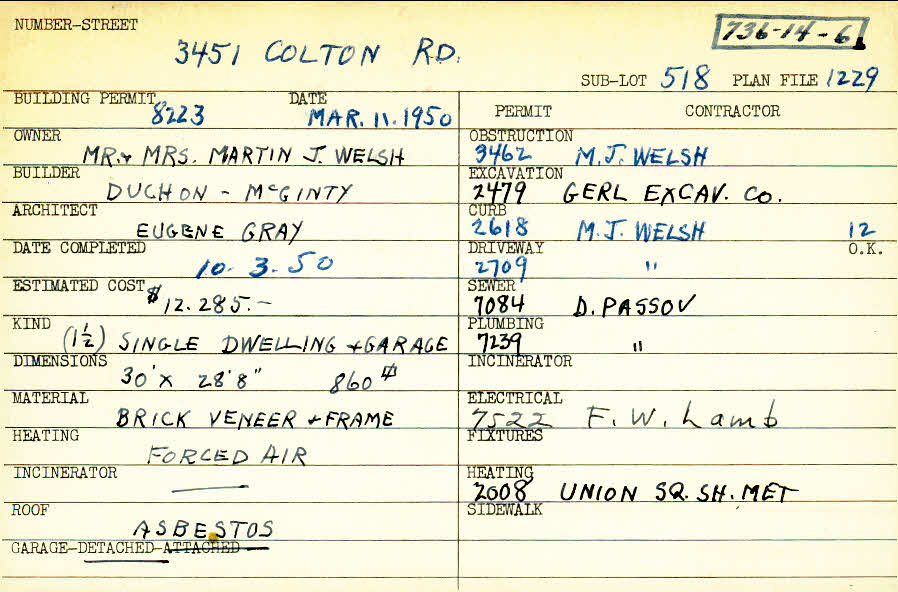 NUMBER-STREET
3451 COLTON RD.
736-14-6
SUB-LOT 518 PLAN FILE 1229
BUILDING PERMIT 8223 DATE MAR. 11. 1950
OWNER
MR. & MRS. MARTIN J. WELSH
BUILDER
DUCHON - McGINTY
ARCHITECT
EUGENE GRAY
DATE COMPLETED
10. 3. 50
ESTIMATED COST $12.285.-
KIND
(1 1/2) SINGLE DWELLING + GARAGE
DIMENSIONS
30' x 28'8" 860 #
MATERIAL
BRICK VENEER + FRAME
HEATING
FORCED AIR
INCINERATOR
ROOF
ASBESTOS
GARAGE-DETACHED-ATTACHED
PERMIT CONTRACTOR
OBSTRUCTION
3462 M.J. WELSH
EXCAVATION
2479 GERL EXCAV. CO.
CURB
2618 M.J. WELSH 12
DRIVEWAY O.K.
2709 "
SEWER
7084 D. PASSOV
PLUMBING
7239 "
INCINERATOR
ELECTRICAL
7522 F. W. Lamb
FIXTURES
HEATING
2608 UNION SQ. SH. MET
SIDEWALK